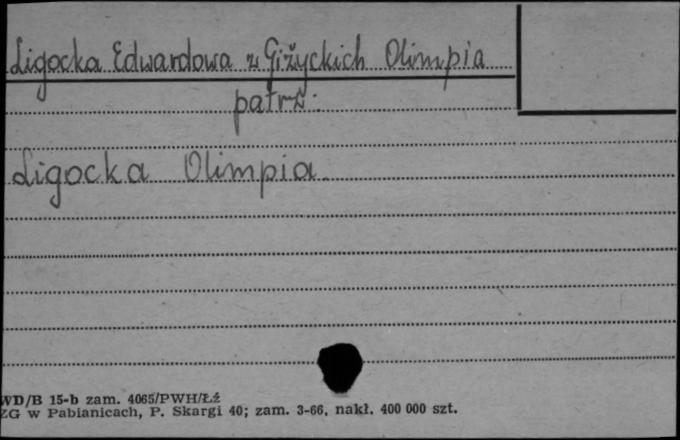 Ligocka Edwardowa z Giżyckich Olimpia
patrz:
Ligocka Olimpia
WD/B 15-b zam. 4065/PWH/Łź
ZG w Pabianicach, P. Skargi 40; zam. 3-66, nakł. 400 000 szt.